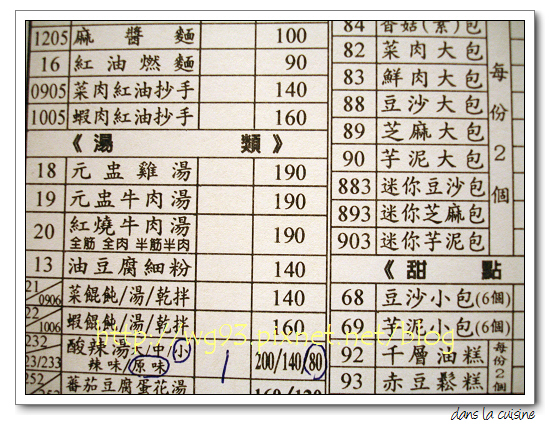 1205 麻醬麵 100
16 紅油燃麵 90
0905 菜肉紅油抄手 140
1005 蝦肉紅油抄手 160
《湯 類》
18 元盅雞湯 190
19 元盅牛肉湯 190
20 紅燒牛肉湯 190
全筋 全肉 半筋半肉
13 油豆腐細粉 140
21 0906 菜餛飩/湯/乾拌 140
22 1006 蝦餛飩/湯/乾拌 160
232 酸辣湯大/中/小 1 200/140/80
233/233 辣味/原味
252 蕃茄豆腐蛋花湯
84 香菇(素)包
82 菜肉大包
83 鮮肉大包
88 豆沙大包
89 芝麻大包
90 芋泥大包
883 迷你豆沙包
893 迷你芝麻包
903 迷你芋泥包
每份2個
《甜 點
68 豆沙小包(6個)
69 芋泥小包(6個)
92 千層油糕
93 赤豆鬆糕
每份2個
http://wg93.pixnet.net/blog
dans la cuisine